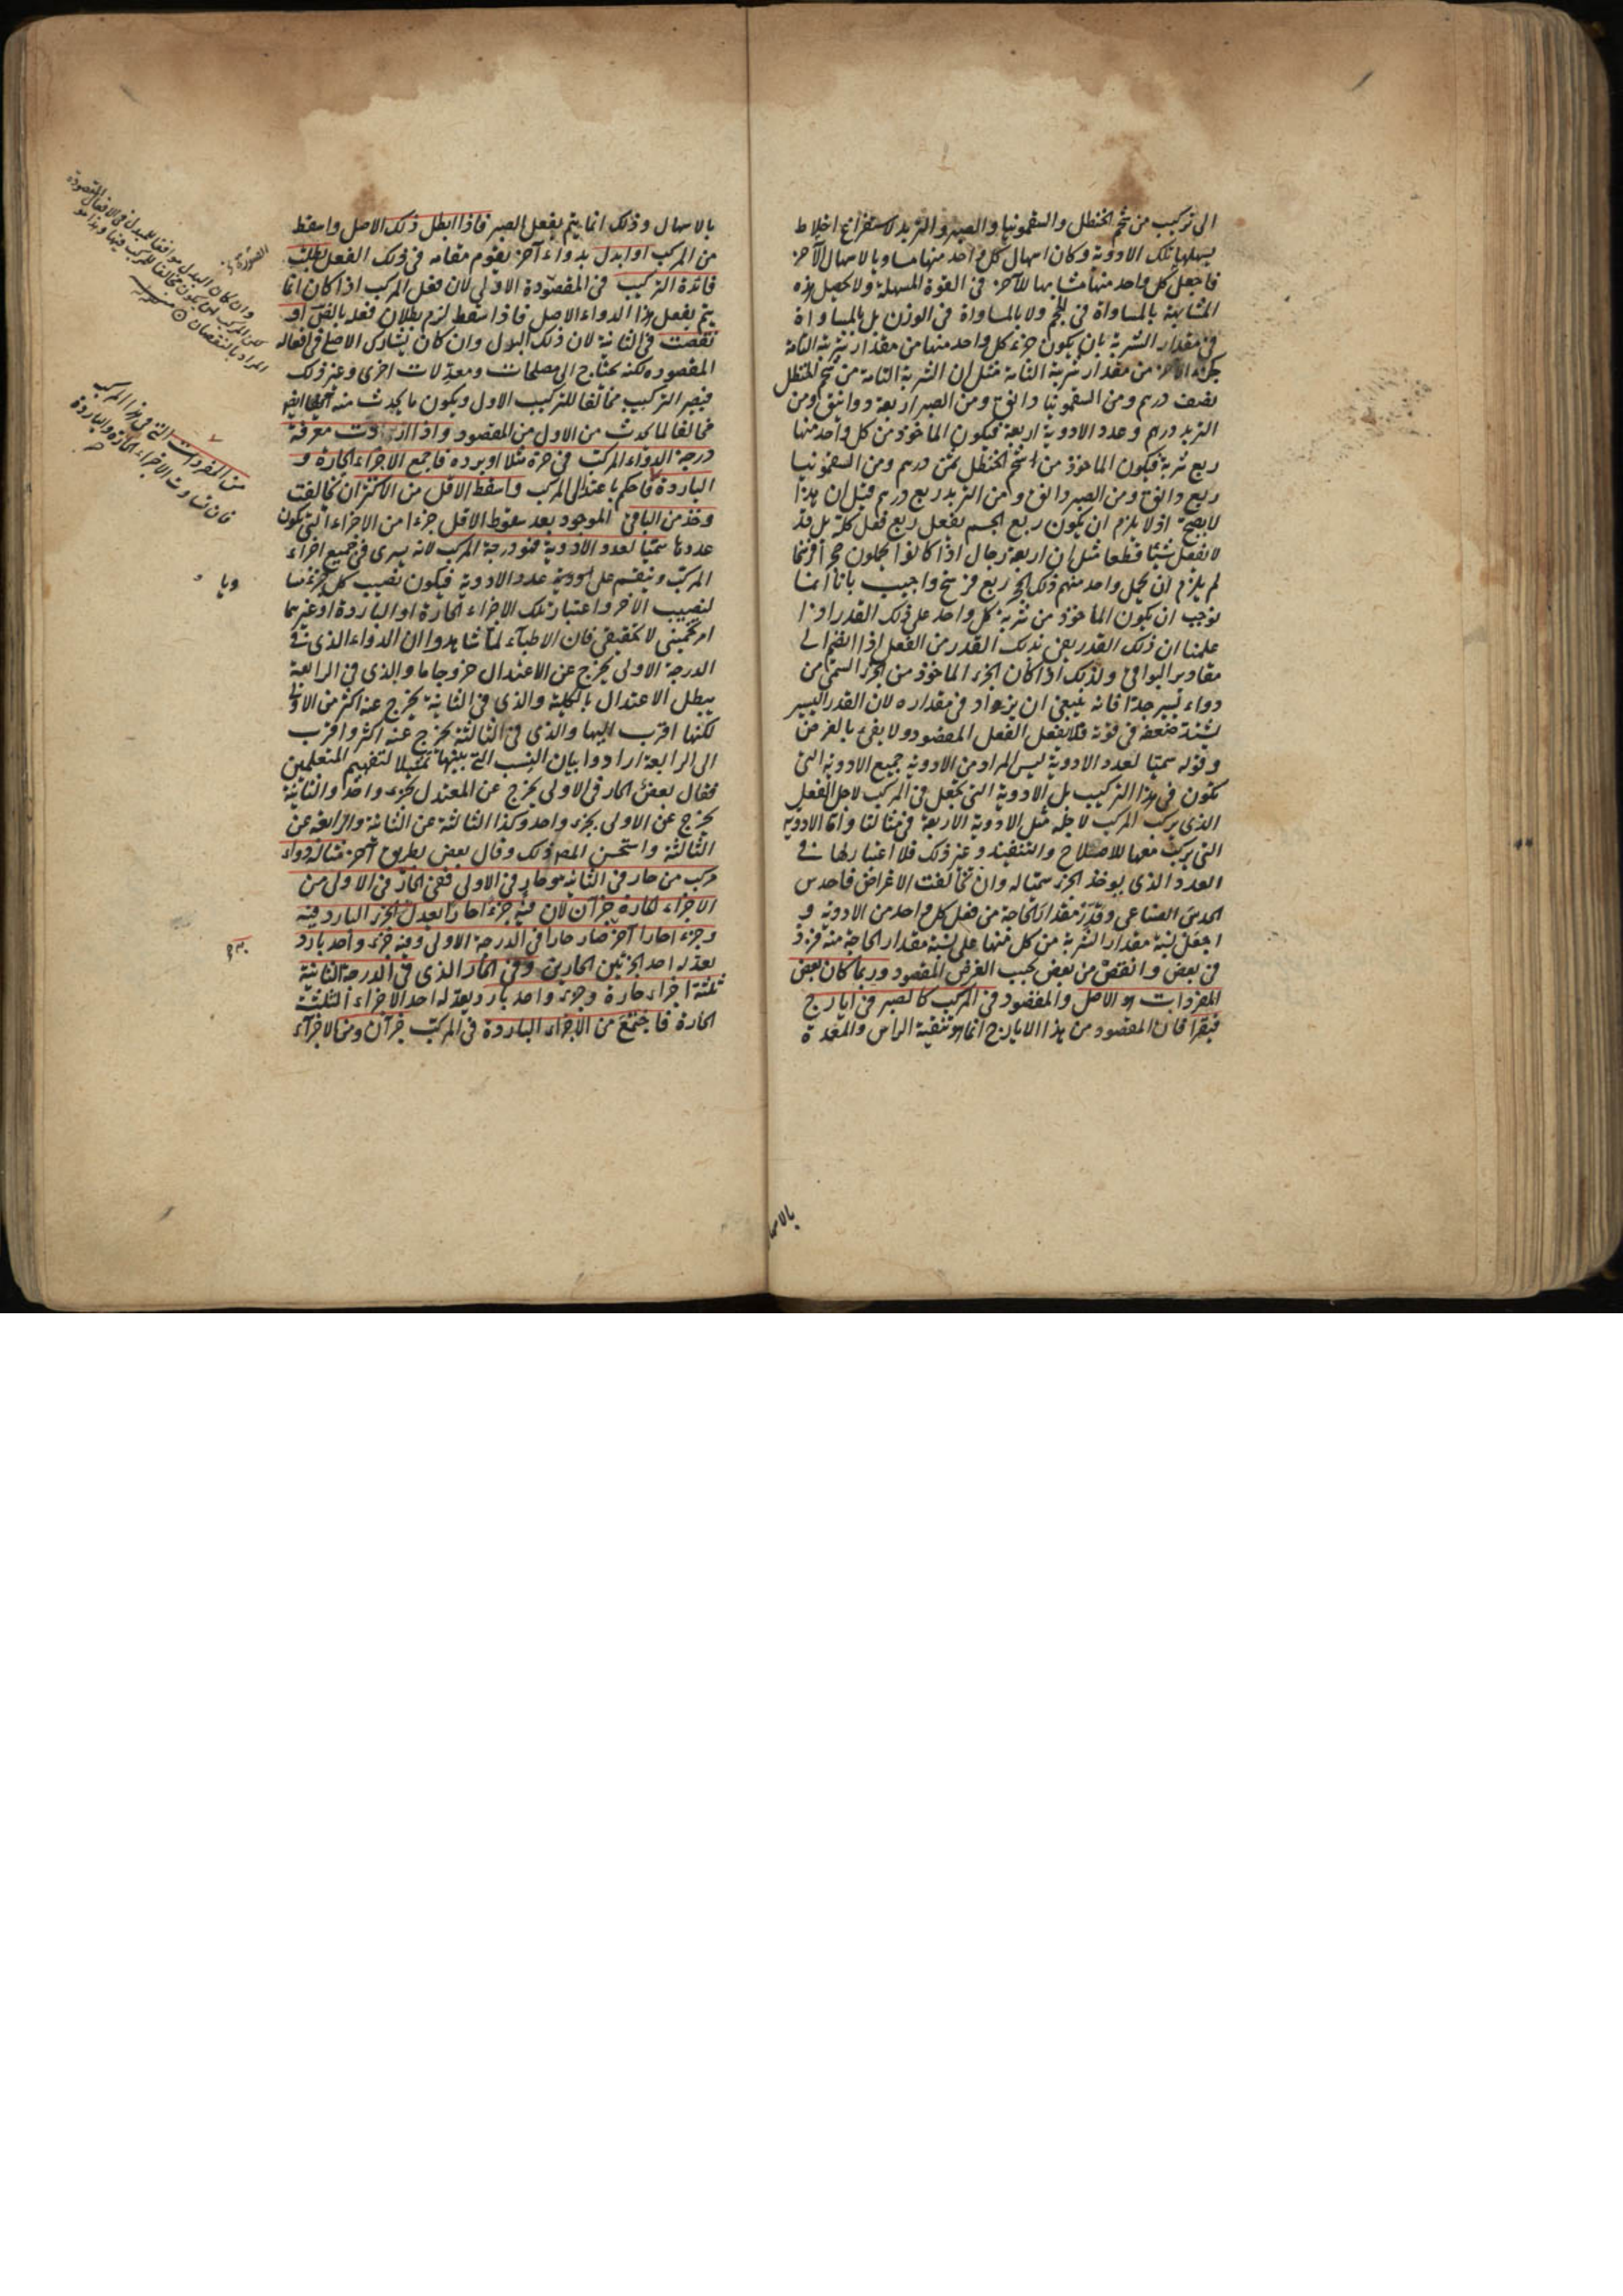 الى تركيب من شحم الحنظل والسقمونيا والصبر والتربد لاستفراغ اخلاط
يسهلها تلك الادوية وكان اسهال كل واحد منها مساويا لاسهال الآخر
فاجعل كل واحد منها مشابها للآخر فى القوة المسهلة ولا تحصل هذه
المشابهة بالمساواة فى الحجم ولا بالمساواة فى الوزن بل بالمساواة
فى مقدار الشربة بان يكون جزء كل واحد منها من مقدار شربته التامة
كجزء الآخر من مقدار شربته التامة مثل ان الشربة التامة من شحم الحنظل
نصف درهم ومن السقمونيا دانق ومن الصبر اربعة دوانيق ومن
التربد درهم وعدد الادوية اربعة فيكون الماخوذ من كل واحد منها
ربع شربة فيكون الماخوذ من شحم الحنظل ثمن درهم ومن السقمونيا
ربع دانق ومن الصبر دانق ومن التربد ربع درهم قيل ان هذا
لا يصح اذ لا يلزم ان يكون ربع الجسم يفعل ربع فعل كله بل قد
لا يفعل شيئا قطعا مثل ان اربعة رجال اذا كانوا يحملون حجرا فرسخا
لم يلزم ان يحمل واحد منهم ذلك الحجر ربع فرسخ واجيب بانا انما
نوجب ان يكون الماخوذ من شربة كل واحد على ذلك القدر اذا
علمنا ان ذلك القدر يفى بذلك القدر من الفعل اذا انضم الى
مقادير البواقى ولذلك اذا كان الجزء الماخوذ من الجزء السمى من
دواء يسير جدا فانه ينبغى ان يزداد فى مقداره لان القدر اليسير
لشدة ضعفه فى قوته فلا يفعل الفعل المقصود ولا يفى بالغرض
وقوله سميا لعدد الادوية ليس المراد من الادوية جميع الادوية التى
تكون فى هذا التركيب بل الادوية التى تجعل فى المركب لاجل الفعل
الذى يركب المركب لاجله مثل الادوية الاربعة فى مثالنا واما الادوية
التى يركب معها للاصلاح والتنفيذ وغير ذلك فلا اعتبار لها فى
العدد الذى يوخذ الجزء سميا له وان تخالفت الاغراض فاحدس
الحدس الصناعى وقدر مقدار الحاجة من فعل كل واحد من الادوية و
اجعل نسبة مقدار الشربة من كل منها على نسبة مقدار الحاجة منه فزد
فى بعض وانقص من بعض بحسب الغرض المقصود وربما كان بعض
المفردات هو الاصل والمقصود فى المركب كالصبر فى ايارج
فيقرا فان المقصود من هذا الايارج انما هو تنقية الراس والمعدة
بالاسها
بالاسهال وذلك انما يتم بفعل الصبر فاذا ابطل ذلك الاصل واسقط
من المركب او ابدل بدواء آخر يقوم مقامه فى ذلك الفعل بطلت
فائدة التركيب فى المقصودة الاولى لان فعل المركب اذا كان انما
يتم بفعل هذا الدواء الاصل فاذا سقط لزم بطلان فعله بالض او
نقصت فى الثانية لان ذلك البدل وان كان يشارك الاصل فى افعاله
المقصودة لكنه يحتاج الى مصلحات ومعدلات اخرى وغير ذلك
فيصير التركيب مخالفا للتركيب الاول ويكون ما يحدث منه ايضا
مخالفا لما يحدث من الاول من المقصود واذا اردت معرفة
درجة الدواء المركب فى حره مثلا او برده فاجمع الاجزاء الحارة و
الباردة فاحكم باعتدال المركب واسقط الاقل من الاكثر ان تخالفت
وخذ من الباقى الموجود بعد سقوط الاقل جزءا من الاجزاء التى يكون
عددها سميا لعدد الادوية فهو درجة المركب لانه يسرى فى جميع اجزاء
المركب وينقسم على عدد الادوية فيكون نصيب كل جزء مسا
لنصيب الآخر واعتبار تلك الاجزاء الحارة او الباردة او غيرهما
امر تخمينى لا تحقيقى فان الاطباء لما شاهدوا ان الدواء الذى فى
الدرجة الاولى يخرج عن الاعتدال خروجا ما والذى فى الرابعة
يبطل الاعتدال بالكلية والذى فى الثانية يخرج عنه اكثر من الاولى
لكنها اقرب اليها والذى فى الثالثة يخرج عنه اكثر واقرب
الى الرابعة ارادوا بيان النسب التى بينها تمثيلا لتفهيم المتعلمين
فقال بعض الحار فى الاولى يخرج عن المعتدل بجزء واحد والثانية
يخرج عن الاولى بجزء واحد وكذا الثالثة عن الثانية والرابعة عن
الثالثة واستحسن المص ذلك وقال بعض بطريق آخر مثاله دواء
مركب من حار فى الثانية وحار فى الاولى ففى الحار فى الاولى من
الاجزاء الحارة جزآن لان فيه جزءا حارا يعدل الجزء البارد فيه
وجزءا حارا آخر صار حارا فى الدرجة الاولى وفيه جزء واحد بارد
يعدله احد الجزئين الحارين وفى الحار الذى فى الدرجة الثانية
ثلثة اجزاء حارة وجزء واحد بارد يعدله احد الاجزاء الثلثة
الحارة فاجتمع من الاجزاء الباردة فى المركب جزآن ومن الاجزاء
وان كان البدل موافقا للمبدل فى الافعال المقصودة
لكن المركب يكون مخالفا للمركب فيها وهذا هو
المراد بالنقصان
من المفردات التى فى هذا المركب
فان تساوت الاجزاء الحارة والباردة
ويا